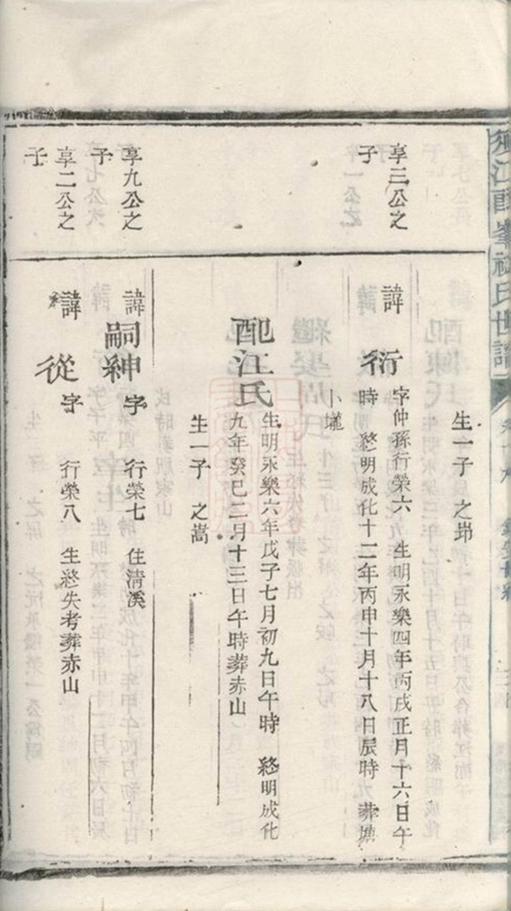 生一子 之昻
享三公之
子
諱 衍 字仲孫行榮六 生明永樂四年丙戌正月十六日午
時 終明成化十二年丙申十月十八日辰時 葬
小壠
配江氏 生明永樂六年戊子七月初九日午時 終明成化
九年癸巳二月十三日午時葬赤山
生一子 之嵩
享九公之
子
諱 嗣紳 字 行榮七 住清溪
享二公之
子
諱 從 字 行榮八 生終失考葬赤山